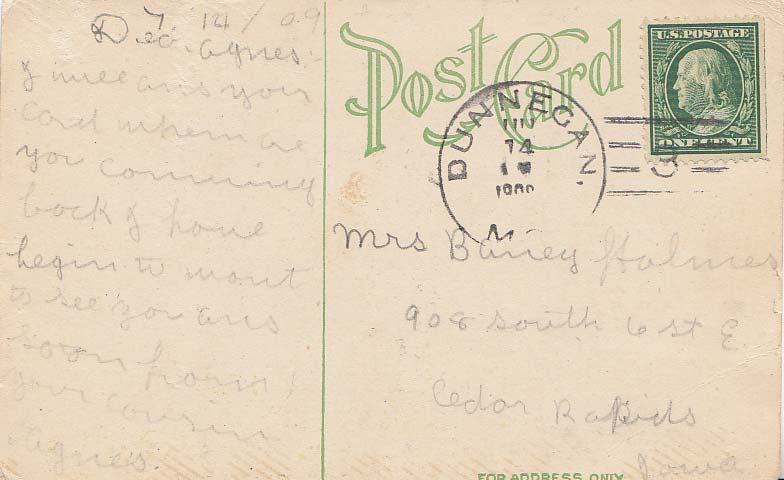 7/14/09
Dea. Agnes.
I will ans your
card when are
you comming
back I hone
begin to wont
to see you ans
soon from
your cousin
Agnes.
Post Card
U.S. POSTAGE
ONE CENT
DUNNEGAN.
14
Mrs Barney Holmes
908 south 6 st E
Cedar Rapids
Iowa
FOR ADDRESS ONLY